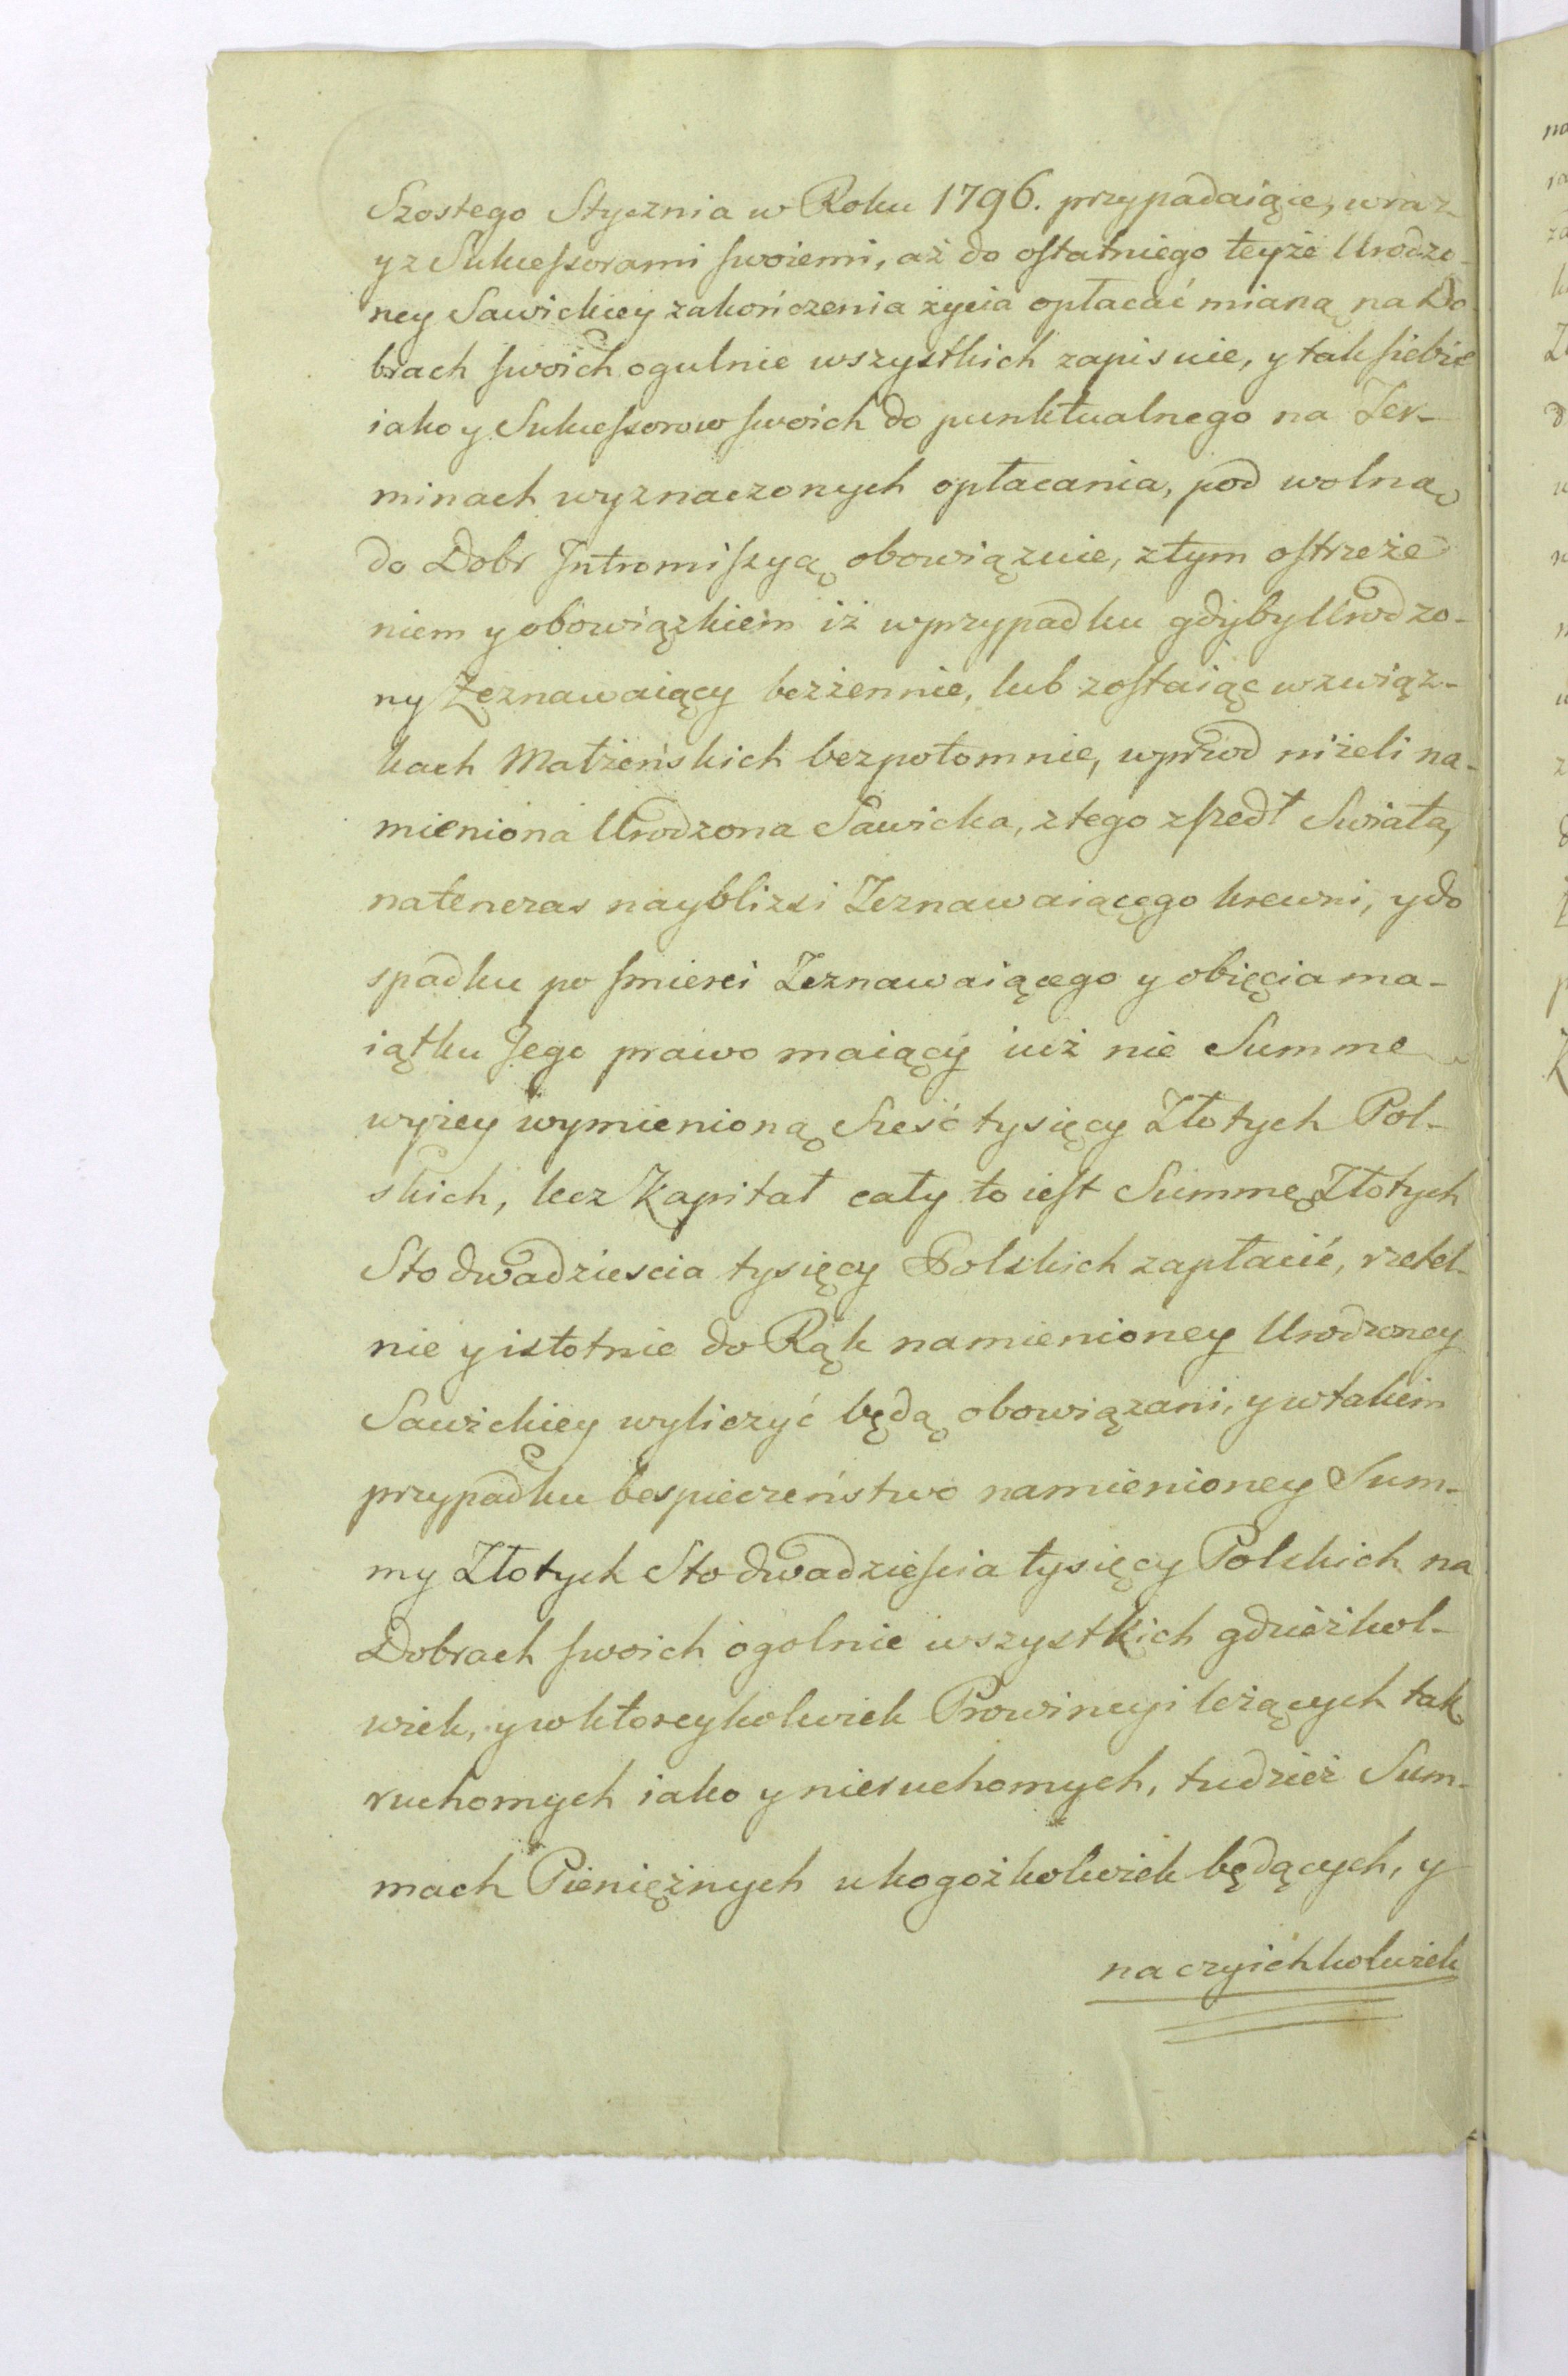 Szostego Stycznia w Roku 1796. przypadaiące, wraz
y z Sukcessorami swoiemi, aż do ostatniego teyże Urodzo-
ney Sawickiey zakończenia życia opłacać mianą na Do
brach swoich ogulnie wszystkich zapisuie, y tak siebie
iako y Sukcessorow swoich do punktualnego na Ter-
minach wyznaczonych opłacania, pod wolną
do Dobr Intromissyą obowiązuie, z tym ostrzeże
niem y obowiązkiem iż w przypadku gdyby Urodzo-
ny Zeznawaiący bezżennie, lub zostaiąc w związ-
kach Małżeńskich bezpotomnie, wprzod niżeli na-
mieniona Urodzona Sawicka, z tego zszedł Swiata,
natenczas nayblizsi Zeznawaiącego krewni, y do
spadku po smierci Zeznawaiącego y obięcia ma-
iątku Jego prawo maiący iuż nie Summe
wyzey wymienioną Sześć tysięcy Złotych Pol-
skich, lecz Kapitał cały to iest Summę Złotych
Sto dwadziescia tysięcy Polskich zapłacić, rzetel-
nie y istotnie do Rąk namienioney Urodzoney
Sawickiey wyliczyć będą obowiązani, y w takim
przypadku bespieczeństwo namienioney Sum-
my Złotych Sto dwadziescia tysięcy Polskich na
Dobrach swoich ogolnie wszystkich gdzieżkol-
wiek, y w ktoreykolwiek Prowincyi leżących tak
ruchomych iako y nieruchomych, tudzież Sum-
mach Pieniężnych u kogożkolwiek będących, y
na czyichkolwiek